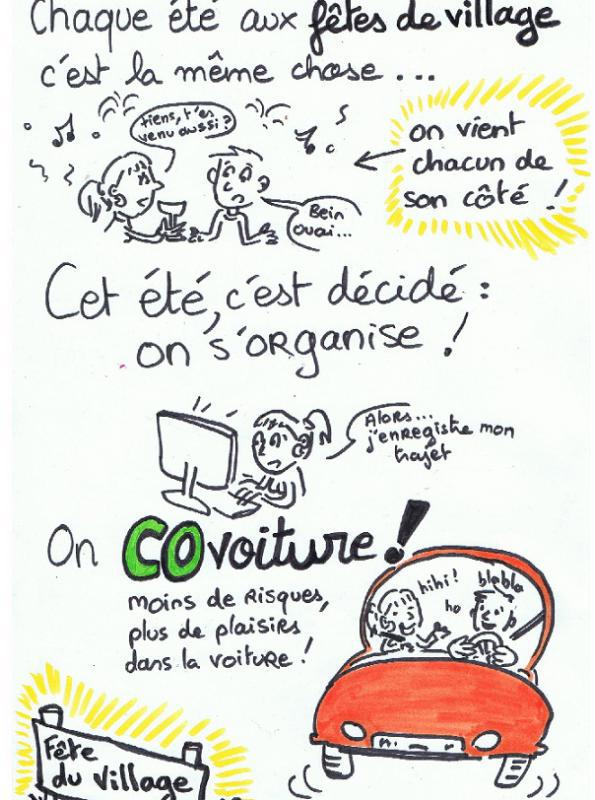 Chaque été aux fêtes de village
c'est la même chose...
tiens, t'es
venu aussi ?
Bein
ouai...
on vient
chacun de
son côté !
Cet été, c'est décidé :
on s'organise !
Alors...
j'enregistre mon
trajet
On COvoiture !
moins de risques,
plus de plaisirs
dans la voiture !
hihi !
ho
blabla
Fête
du village